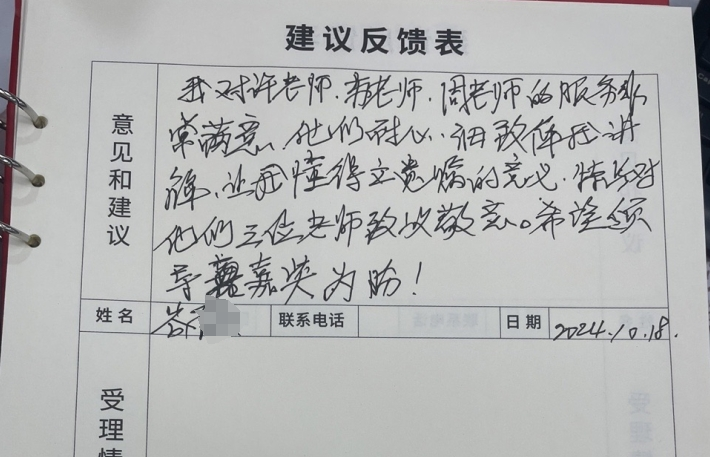 建议反馈表
意见和建议
我对许老师、老师、周老师的服务非
常满意、他们耐心、细致作讲
解、让我懂得立遗嘱的意义、特别对
他们三位老师致以敬意。希望领
导嘉奖为盼！
姓名
联系电话
日期 2024.10.18.
受理情